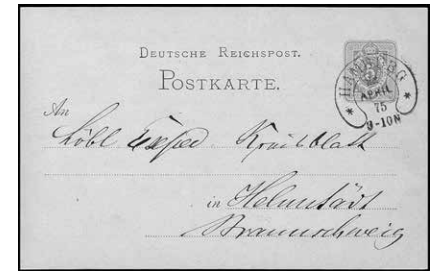 DEUTSCHE REICHSPOST.
POSTKARTE.
* HAMBURG *
APRIL
75
9-10N
An
Löbl Exped Kreisblatt
in Helmstädt
Braunschweig